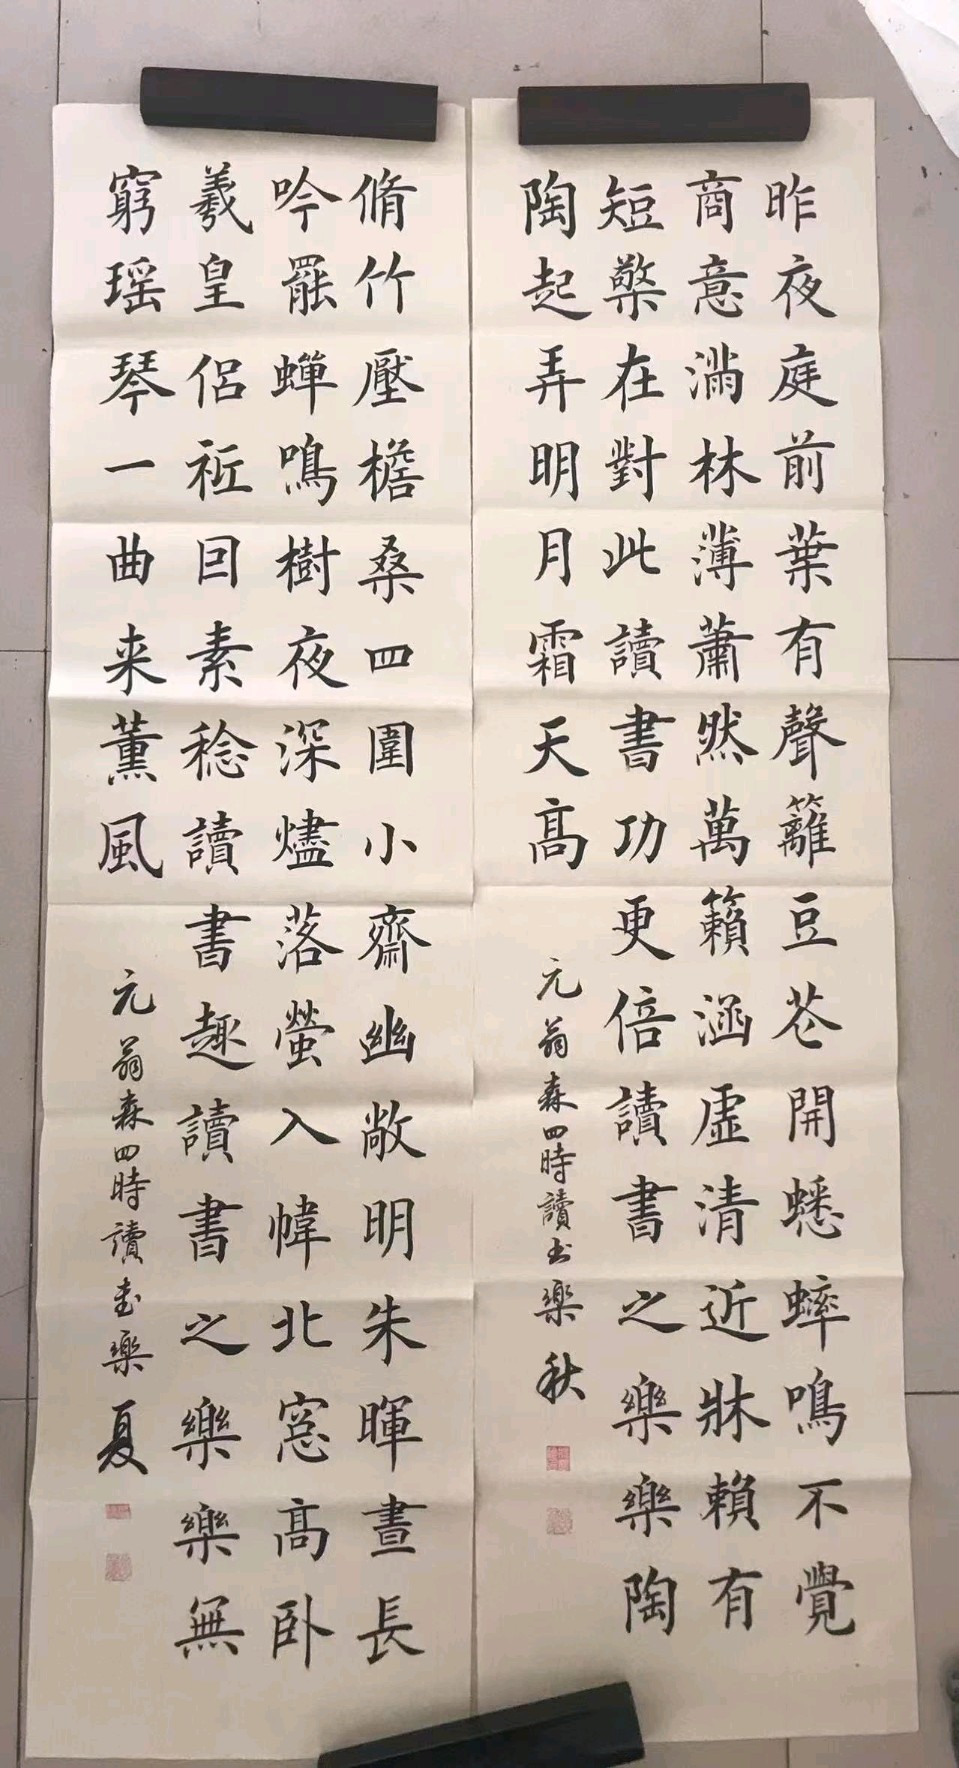 昨夜庭前葉有聲籬豆芲開蟋蟀鳴不覺
商意滿林薄蕭然萬籟涵虛清近牀賴有
短檠在對此讀書功更倍讀書之樂樂陶
陶起弄明月霜天髙
元翁森四時讀书樂秋
脩竹壓檐桑四圍小齋幽敞明朱暉晝長
吟罷蟬鳴樹夜深燼落螢入幃北窓髙卧
羲皇侶衹囙素稔讀書趣讀書之樂樂無
窮瑶琴一曲来薰風
元翁森四時讀書樂夏